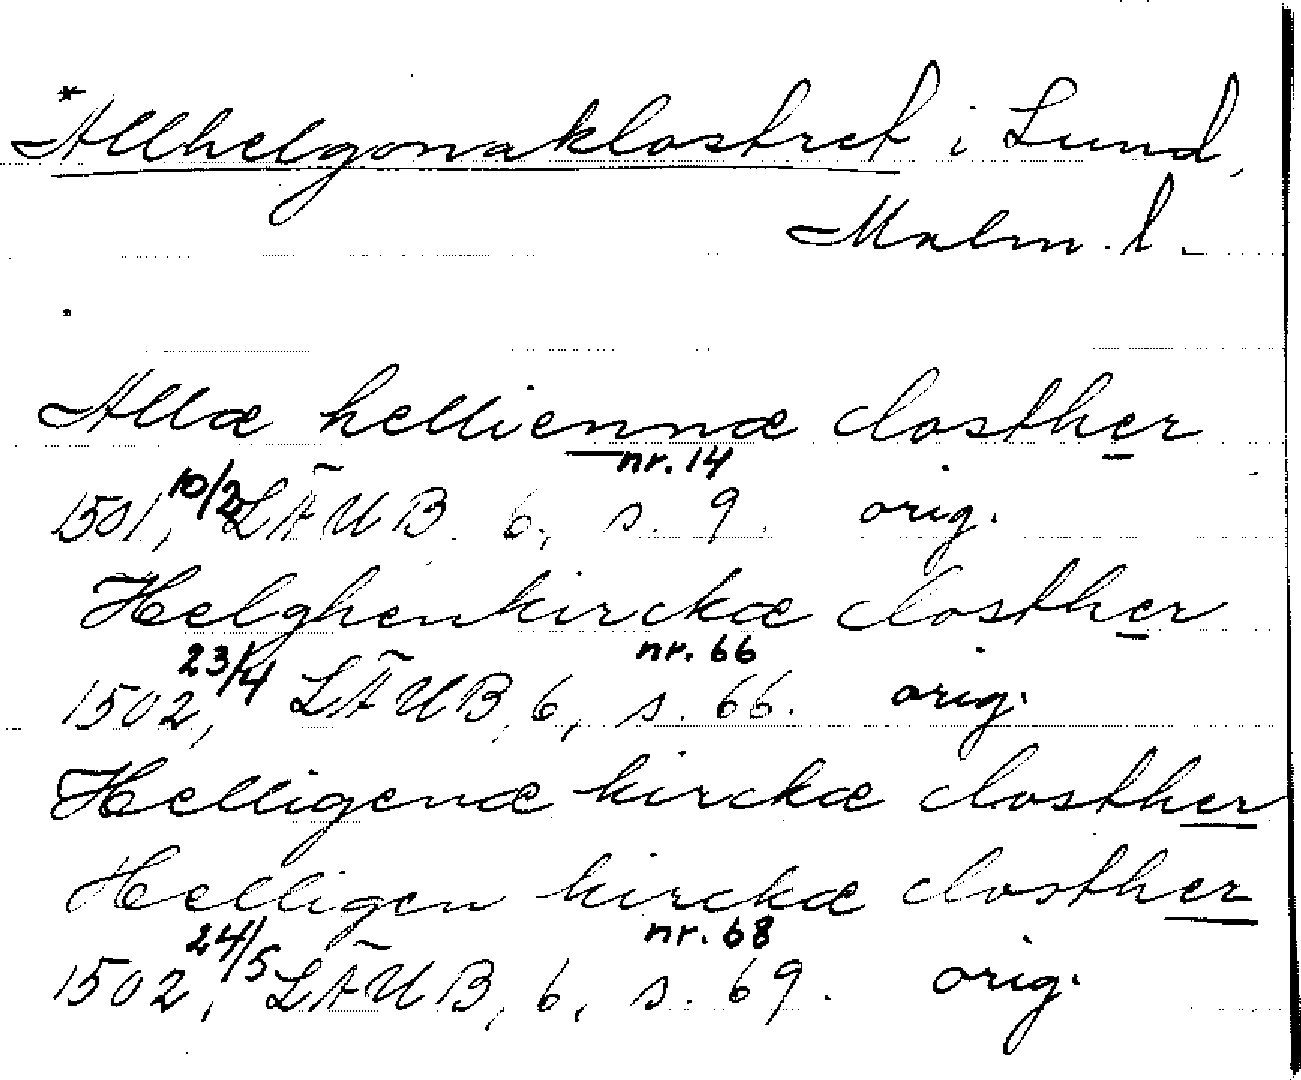 *Allhelgonaklostret i Lund,
Malm. l.
Allæ helliennæ closther
nr. 14
1501, 10/2 LÄUB. 6, s. 9. orig.
Helghenkirckæ closther
nr. 66
1502, 23/4 LÄUB, 6, s. 66. orig.
Helligenæ kirckæ closther
Helligen kirckæ closther
nr. 68
1502, 24/5 LÄUB, 6, s. 69. orig.